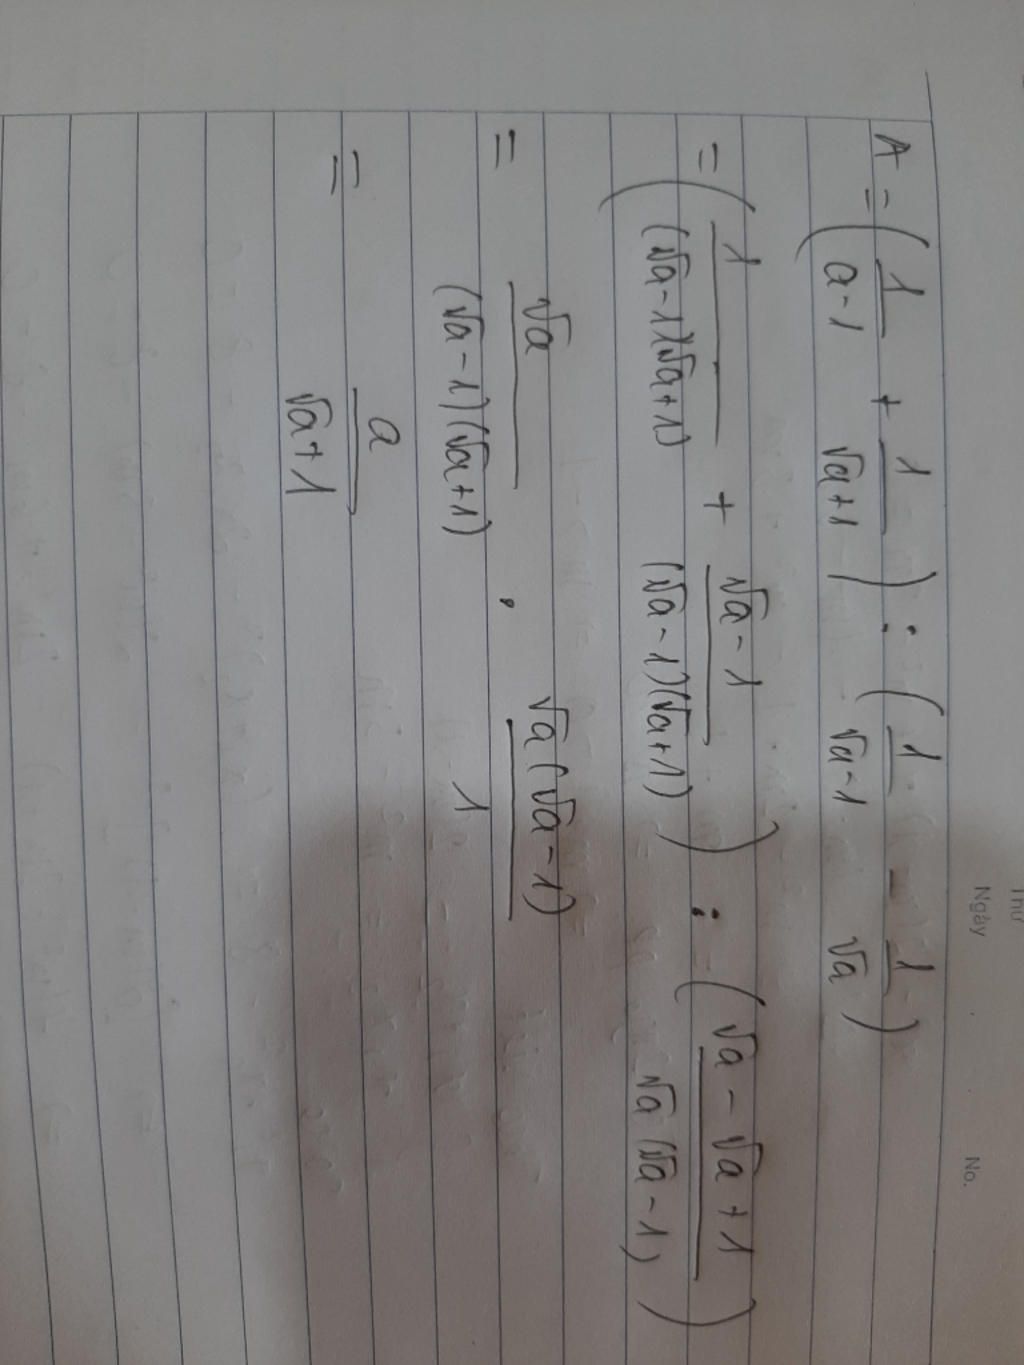 Thứ
Ngày
No.
A = ( 1/(a-1) + 1/(√a+1) ) : ( 1/(√a-1) - 1/√a )
= ( 1/((√a-1)(√a+1)) + (√a-1)/((√a-1)(√a+1)) ) : ( (√a-√a+1)/(√a(√a-1)) )
= √a/((√a-1)(√a+1)) . √a(√a-1)/1
= a/(√a+1)